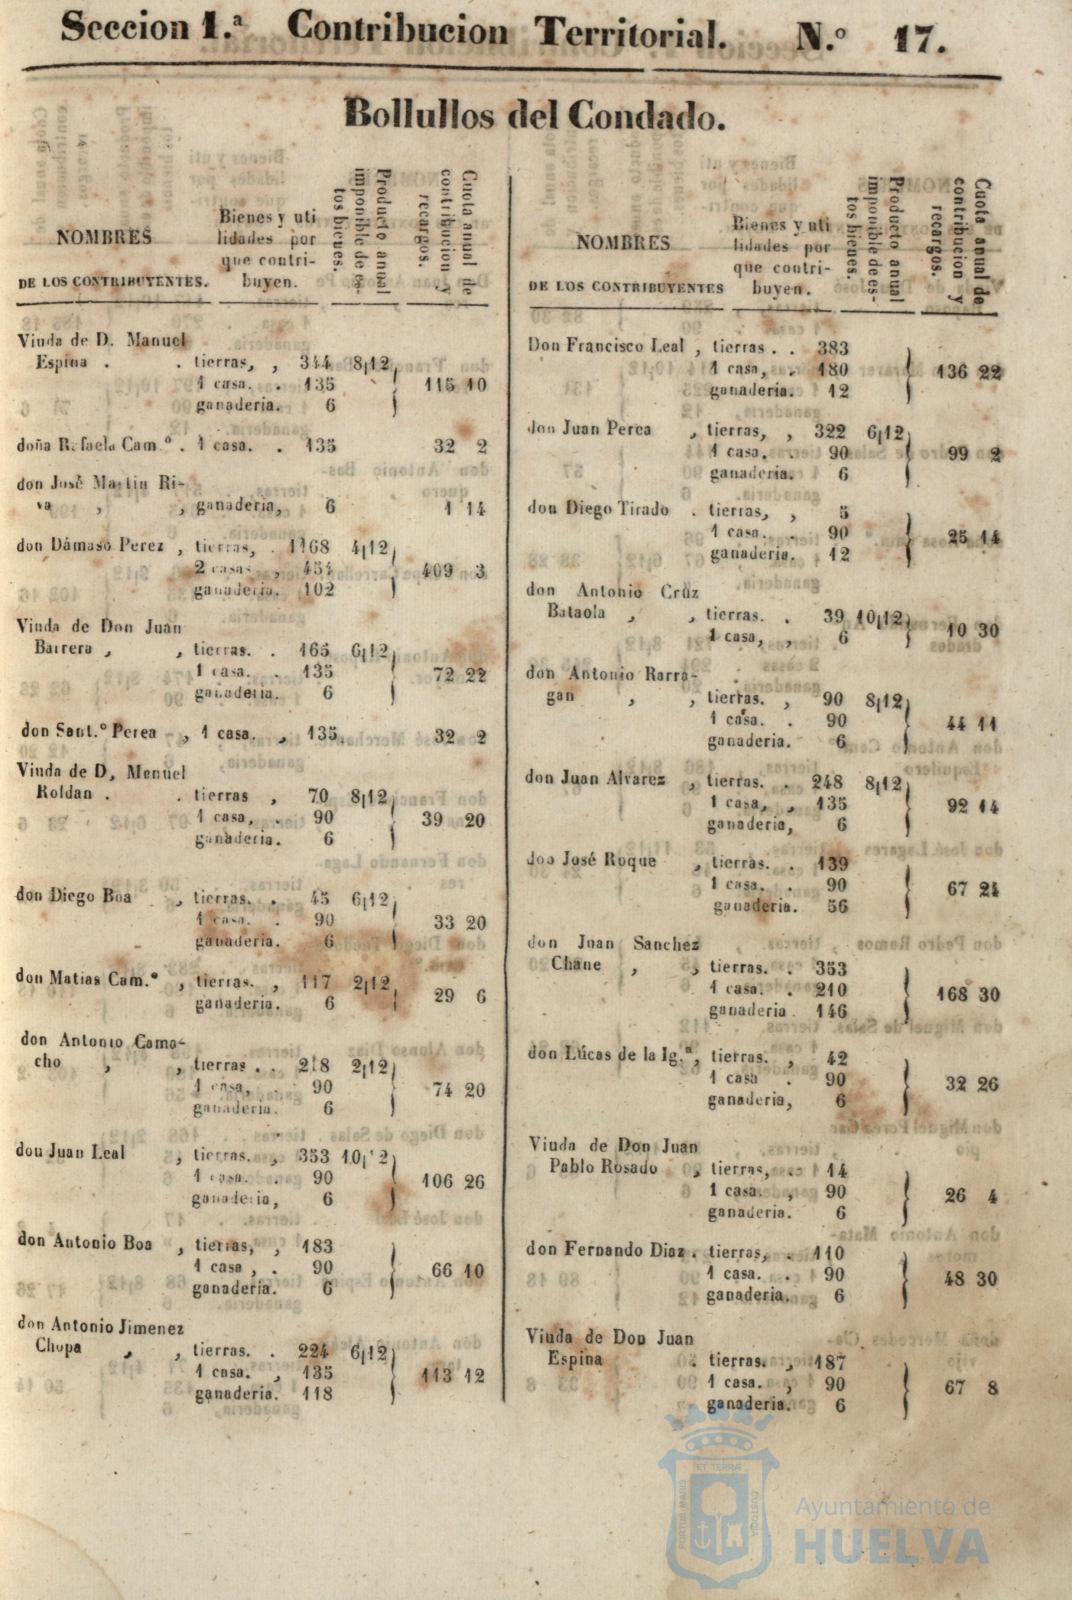 Seccion 1.ª Contribucion Territorial. N.º 17.
Bollullos del Condado.
NOMBRES
DE LOS CONTRIBUYENTES.
Bienes y uti
lidades por
que contri-
buyen.
Producto anual
imponible de es-
tos bienes.
Cuota anual de
contribucion y
recargos.
Viuda de D. Manuel
Espina . . tierras, , 344 8|12
1 casa. . 135 115 10
ganaderia. 6
doña Rafaela Cam.º . 1 casa. . 135 32 2
don José Martin Ri-
va , , ganaderia, 6 1 14
don Dámaso Perez , tierras, . 1168 4|12
2 casas , 454 409 3
ganaderia. 102
Viuda de Don Juan
Barrera , , tierras. . 165 6|12
1 casa. . 135 72 22
ganaderia. 6
don Sant.º Perea , 1 casa. , 135. 32 2
Viuda de D, Manuel
Roldan . . tierras , 70 8|12
1 casa, . 90 39 20
ganaderia. 6
don Diego Boa , tierras. . 45 6|12
1 casa. . 90 33 20
ganaderia. 6
don Matias Cam.º , tierras. , 117 2|12
ganaderia. 6 29 6
don Antonio Cama-
cho , , tierras . . 218 2|12
1 casa, . 90 74 20
ganaderia. 6
don Juan Leal , tierras. , 353 10|12
1 casa. . 90 106 26
ganaderia, 6
don Antonio Boa , tierras, , 183
1 casa , . 90 66 10
ganaderia. 6
don Antonio Jimenez
Chopa , , tierras. . 224 6|12
1 casa. , 135 113 12
ganaderia. 118
NOMBRES
DE LOS CONTRIBUYENTES
Bienes y uti
lidades por
que contri-
buyen.
Producto anual
imponible de es-
tos bienes.
Cuota anual de
contribucion y
recargos.
Don Francisco Leal , tierras . . 383
1 casa, . 180 136 22
ganaderia. 12
don Juan Perea , tierras, , 322 6|12
1 casa. . 90 99 2
ganaderia. 6
don Diego Tirado . tierras, , 5
1 casa. . 90 25 14
ganaderia. 12
don Antonio Cruz
Bataola , , tierras. . 39 10|12
1 casa, , 6 10 30
don Antonio Rarra-
gan , , tierras. , 90 8|12
1 casa. . 90 44 11
ganaderia. 6
don Juan Alvarez , tierras. . 248 8|12
1 casa, , 135 92 14
ganaderia, 6
don José Roque , tierras. . 139
1 casa. . 90 67 24
ganaderia. 56
don Juan Sanchez
Chane , , tierras. . 353
1 casa. . 210 168 30
ganaderia 146
don Lúcas de la Ig.ª, tierras. , 42
1 casa . 90 32 26
ganaderia, 6
Viuda de Don Juan
Pablo Rosado , tierras, . 14
1 casa. , 90 26 4
ganaderia. 6
don Fernando Diaz . tierras, . 110
1 casa. . 90 48 30
ganaderia. 6
Viuda de Don Juan
Espina . tierras. , 187
1 casa. , 90 67 8
ganaderia. 6
ET TERRÆ
PORTUS MARIS
CUSTODIA
Ayuntamiento de
HUELVA